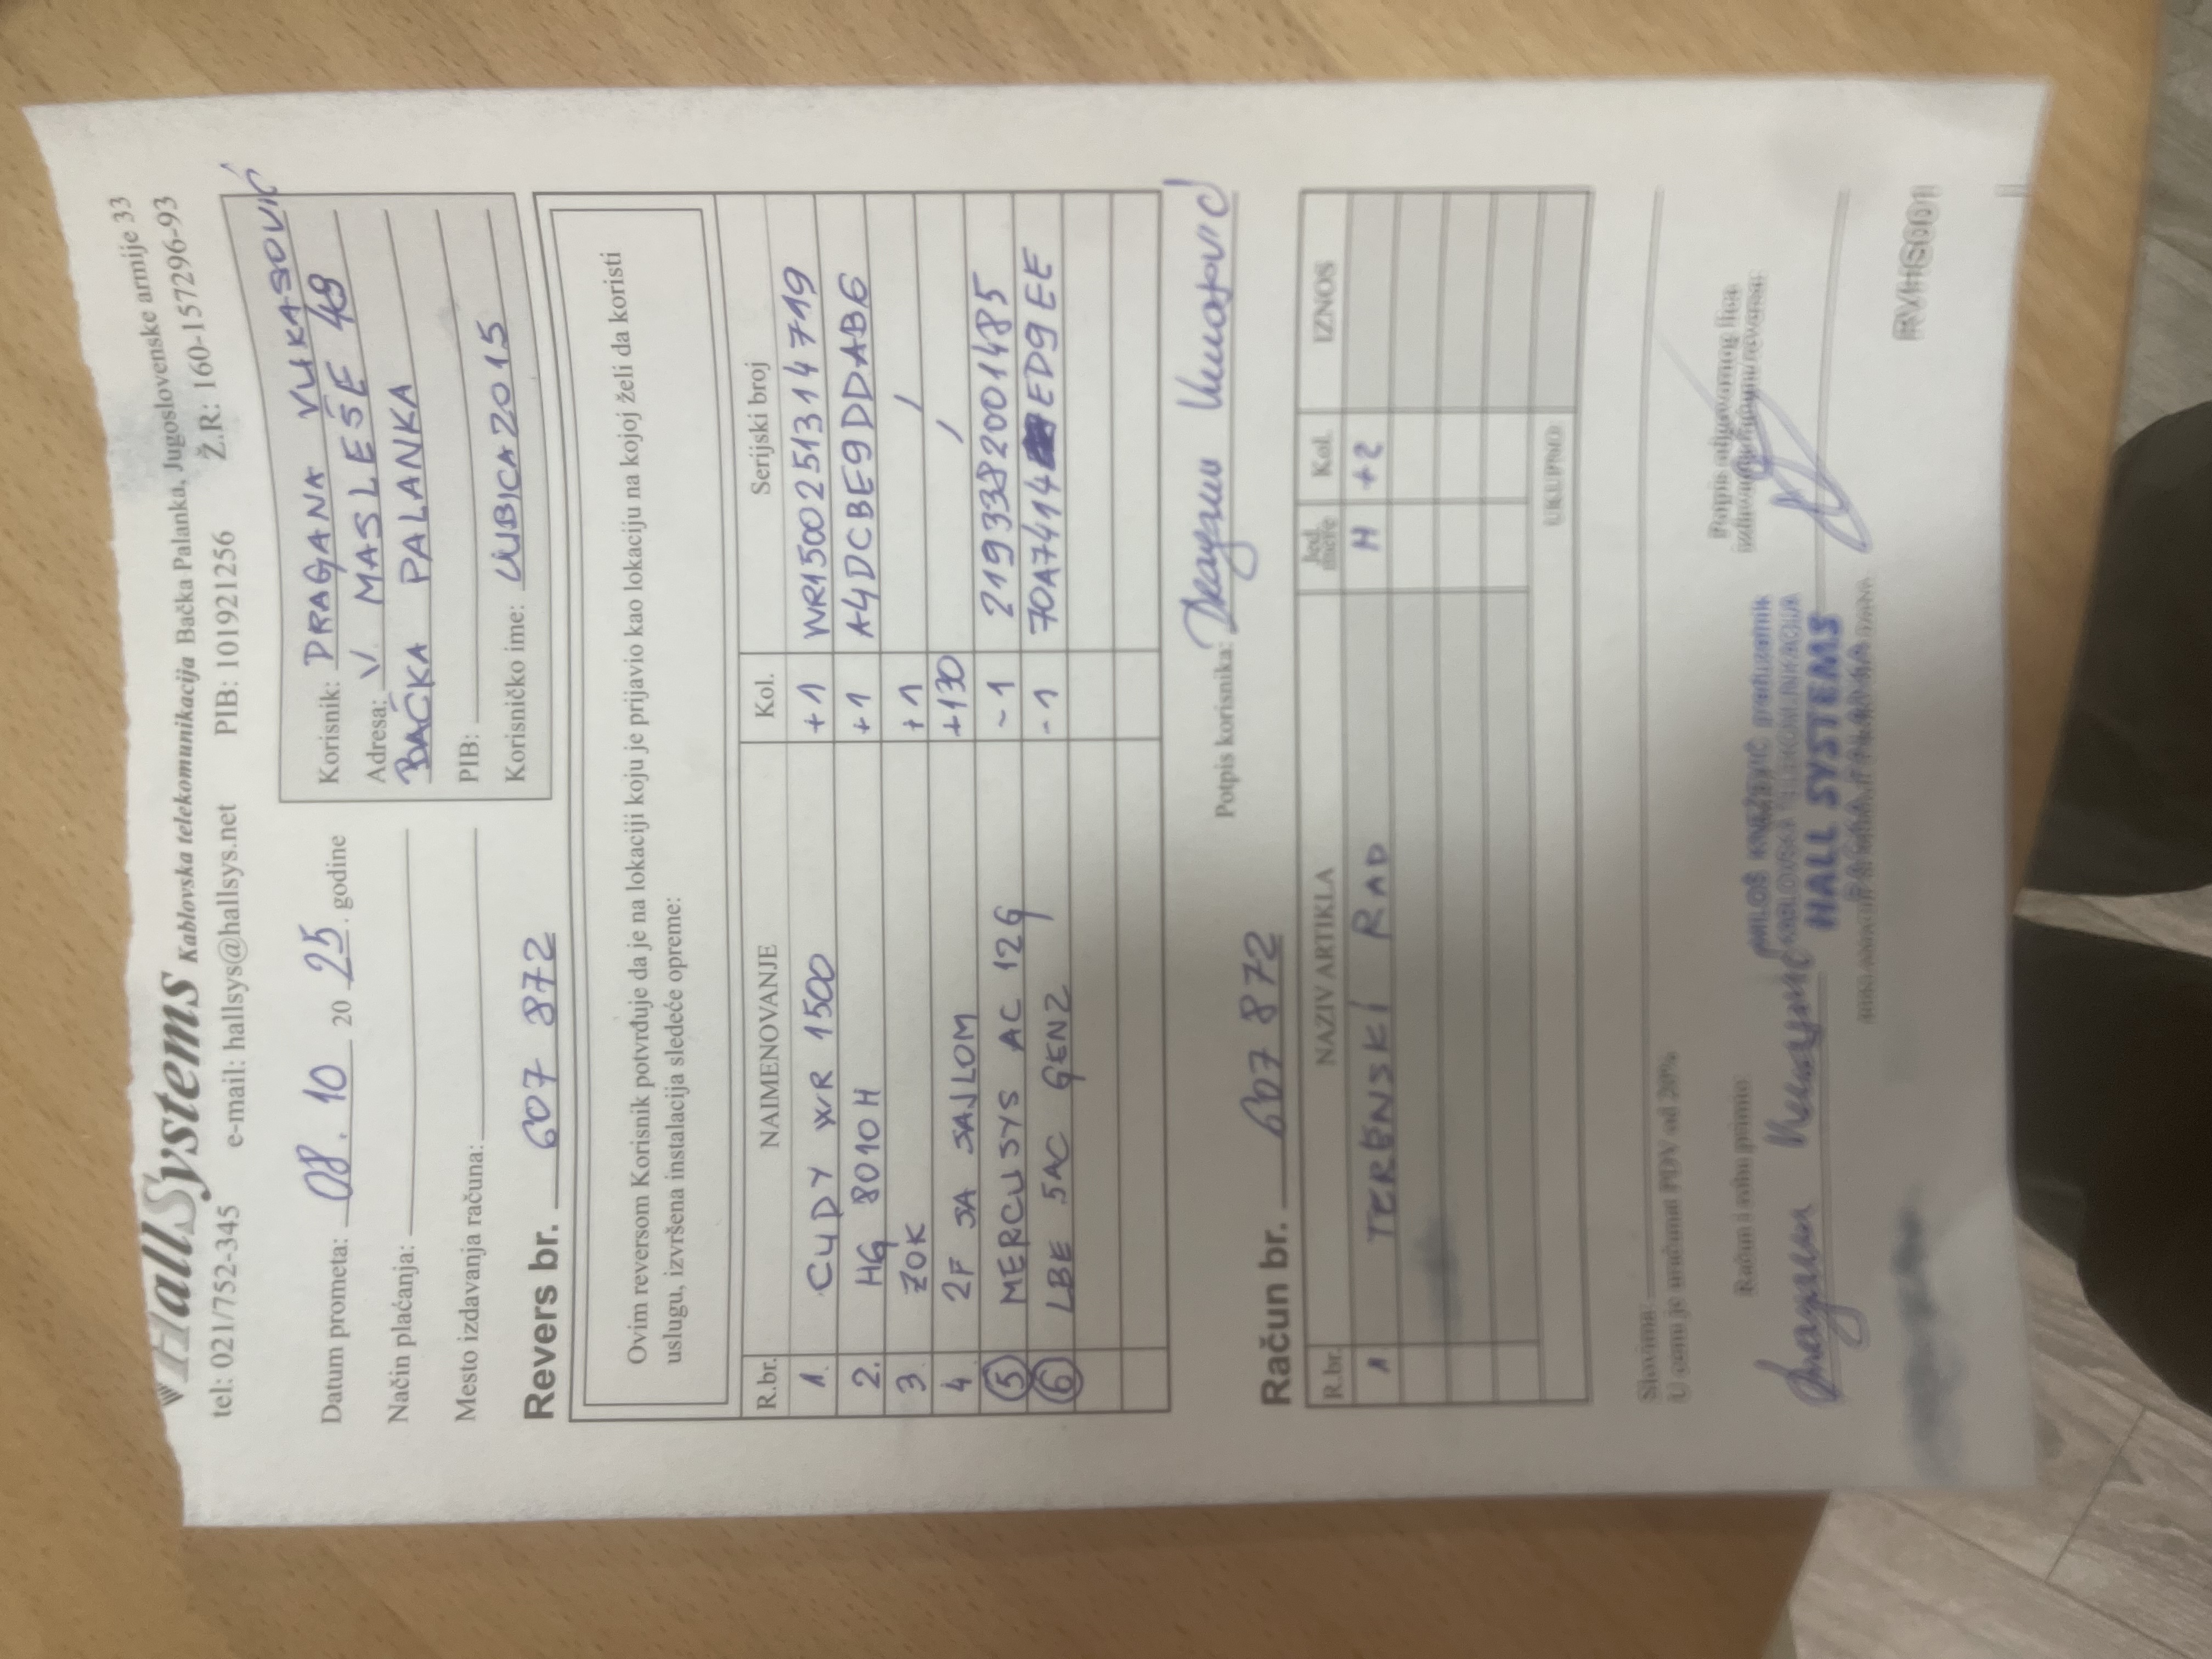 HallSystems Kablovska telekomunikacija Bačka Palanka, Jugoslovenske armije 33
tel: 021/752-345 e-mail: hallsys@hallsys.net PIB: 101921256 Ž.R: 160-157296-93
Datum prometa: 08. 10 20 25. godine
Način plaćanja:
Mesto izdavanja računa:
Korisnik: DRAGANA VUKASOVIĆ
Adresa: V. MASLEŠE 49
BAČKA PALANKA
PIB:
Korisničko ime: LJUBICA2015
Revers br. 607 872
Ovim reversom Korisnik potvrđuje da je na lokaciji koju je prijavio kao lokaciju na kojoj želi da koristi
uslugu, izvršena instalacija sledeće opreme:
R.br. NAIMENOVANJE Kol. Serijski broj
1. CUDY WR 1500 +1 WR1500251314719
2. HG 8010H +1 A4DCBE9DDAB6
3. ZOK +1 /
4. 2F SA SAJLOM +130 /
5 MERCUSYS AC 12G -1 2193382001485
6 LBE 5AC GEN2 -1 70A7414 ED9EE
Potpis korisnika:
Račun br. 607 872
R.br. NAZIV ARTIKLA Jed. mere Kol. IZNOS
1 TERENSKI RAD H +2
UKUPNO
Slovima:
U cenu je uračunat PDV od 20%
Račun i robu primio:
Potpis odgovornog lica
MILOŠ KNEŽEVIĆ preduzetnik
KABLOVSKA TELEKOMUNIKACIJA
HALL SYSTEMS
BAČKA PALANKA